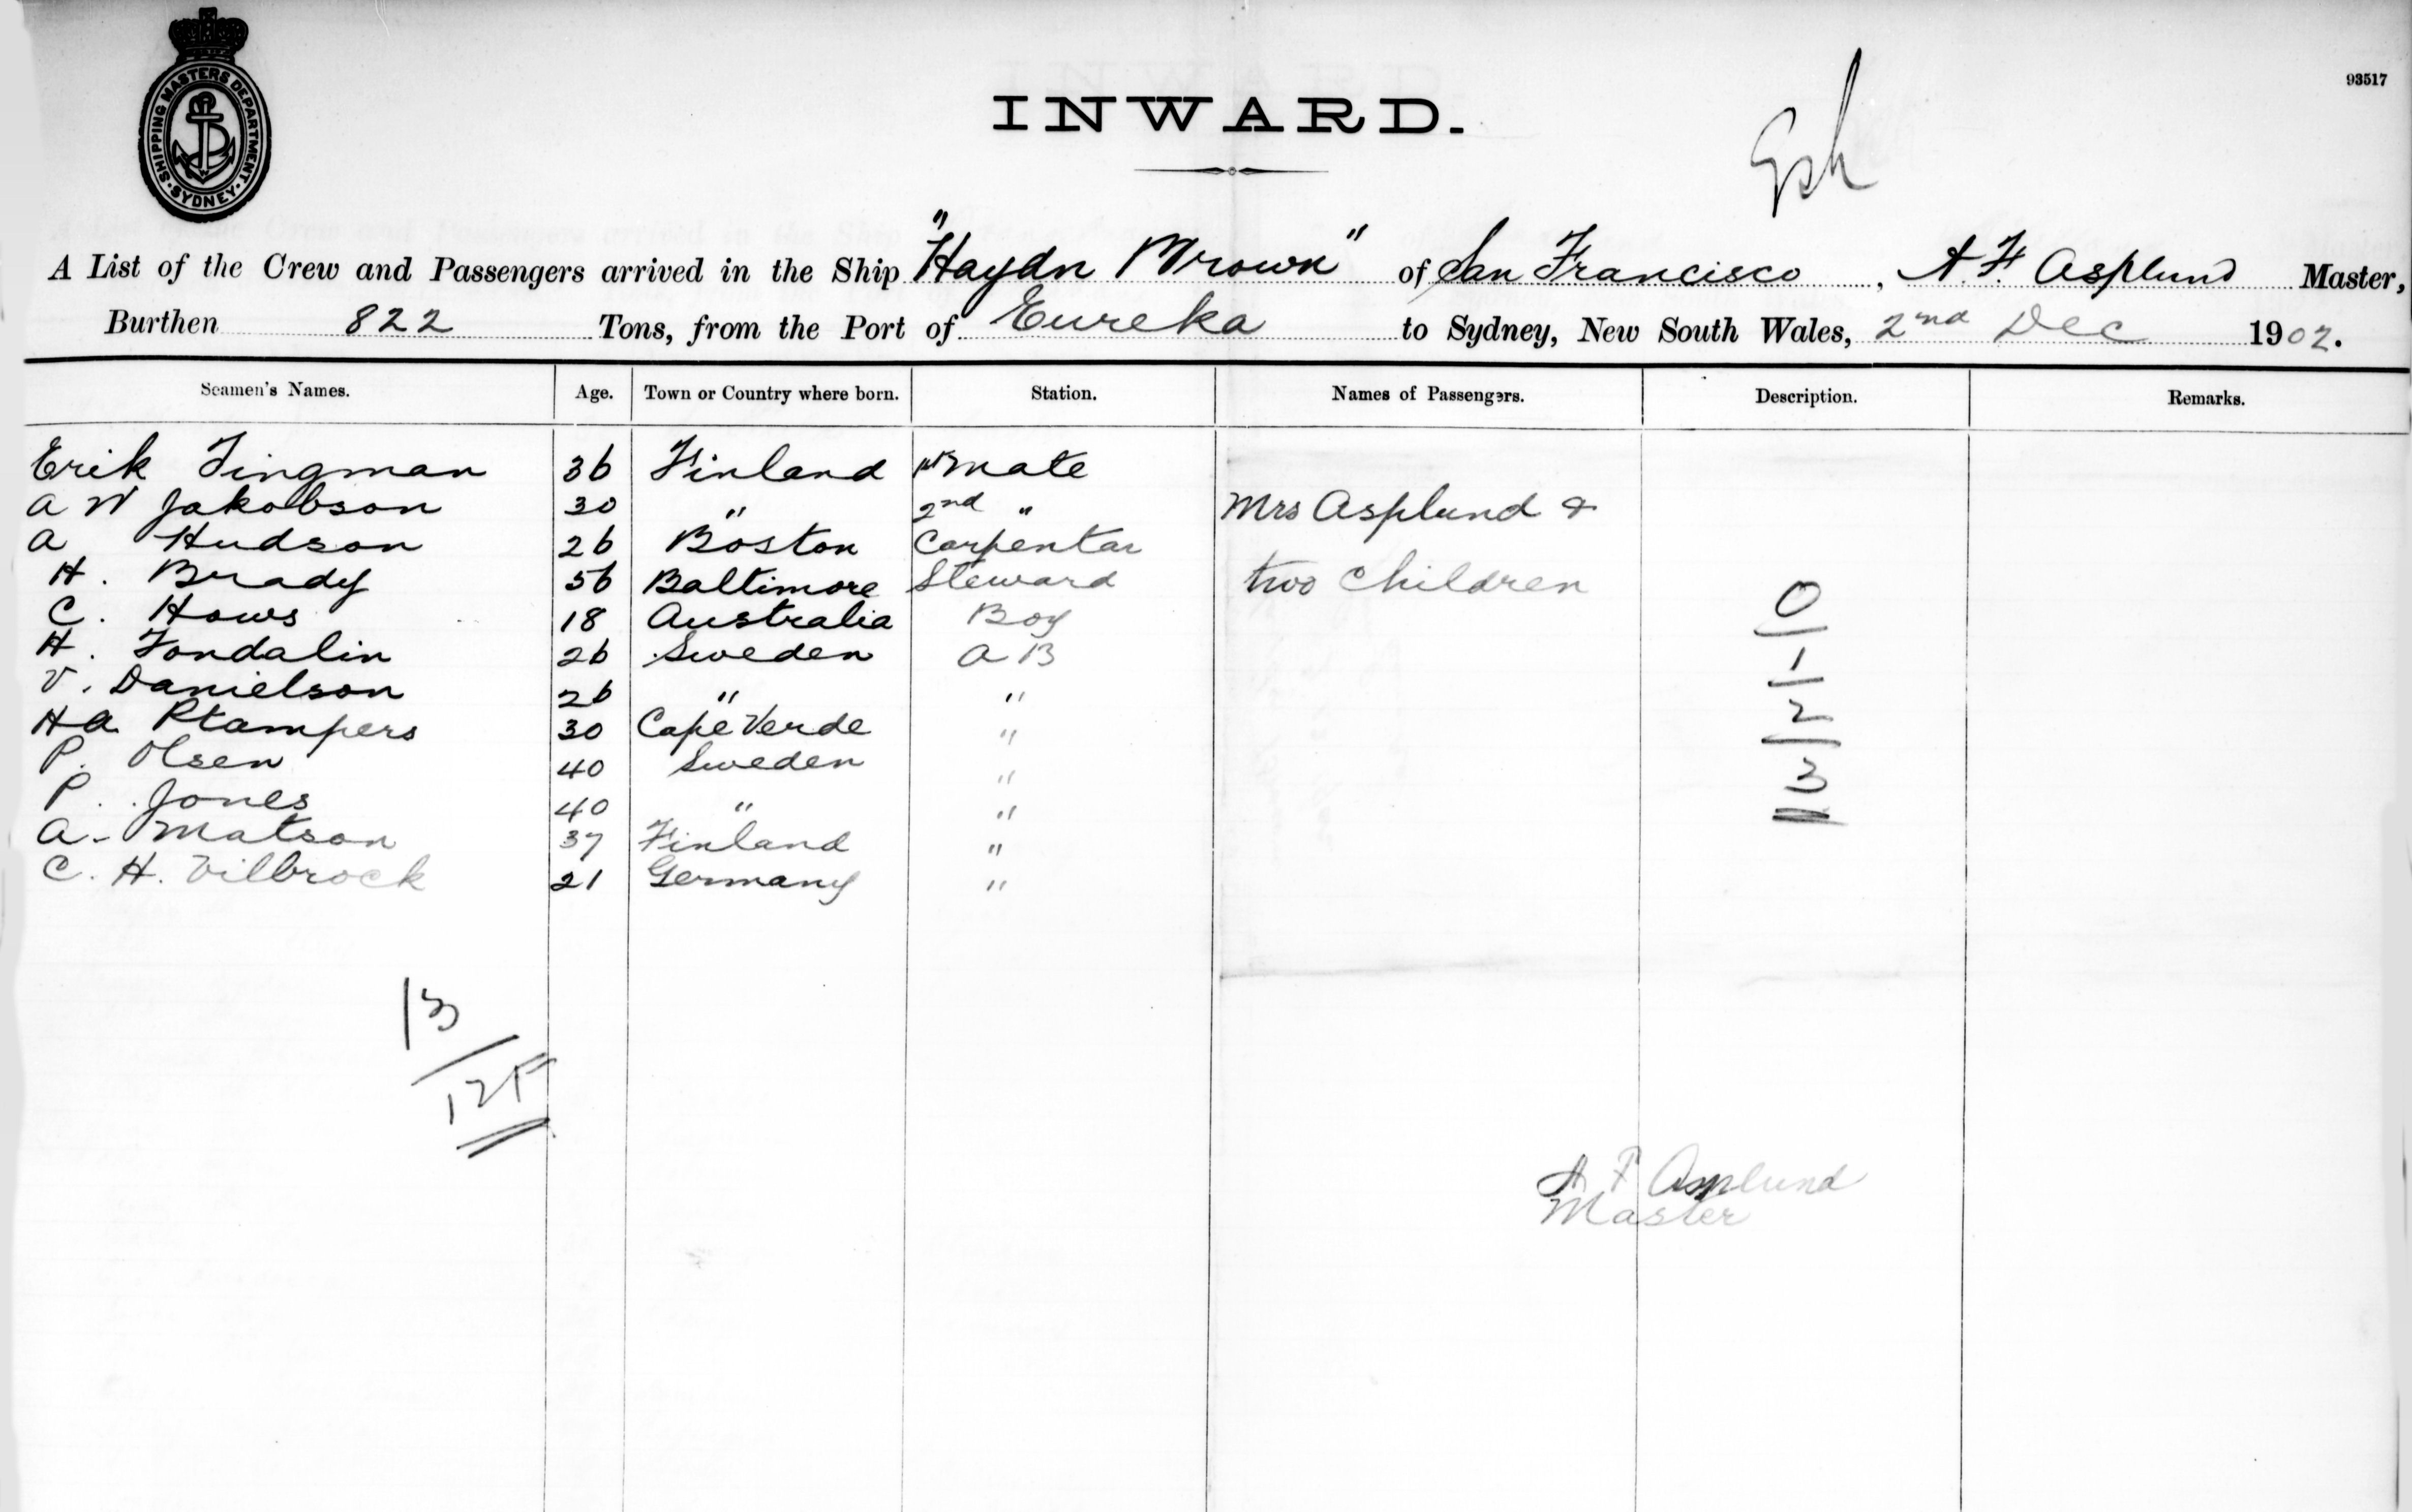 SHIPPING MASTERS DEPARTMENT. SYDNEY
93517
INWARD.
A List of the Crew and Passengers arrived in the Ship "Haydn Mrown" of San Francisco, A. F. Asplund Master,
Burthen 822 Tons, from the Port of Eureka to Sydney, New South Wales, 2nd Dec 1902.
Seamen's Names. Age. Town or Country where born. Station. Names of Passengers. Description. Remarks.
Erik Tingman 36 Finland 1st mate
A W Jakobson 30 " 2nd " Mrs Asplund &
A Hudson 26 Boston Carpentar
H. Brady 56 Baltimore Steward two Children
C. Hows 18 Australia Boy 0
H. Fondalin 26 Sweden A B 1
V. Danielson 26 " " 2
H A Ptampers 30 Cape Verde "
P. Olsen 40 Sweden " 3
P. Jones 40 " "
A. Matson 37 Finland "
C. H. Vilbrock 21 Germany "
13
12
A F Asplund
Master